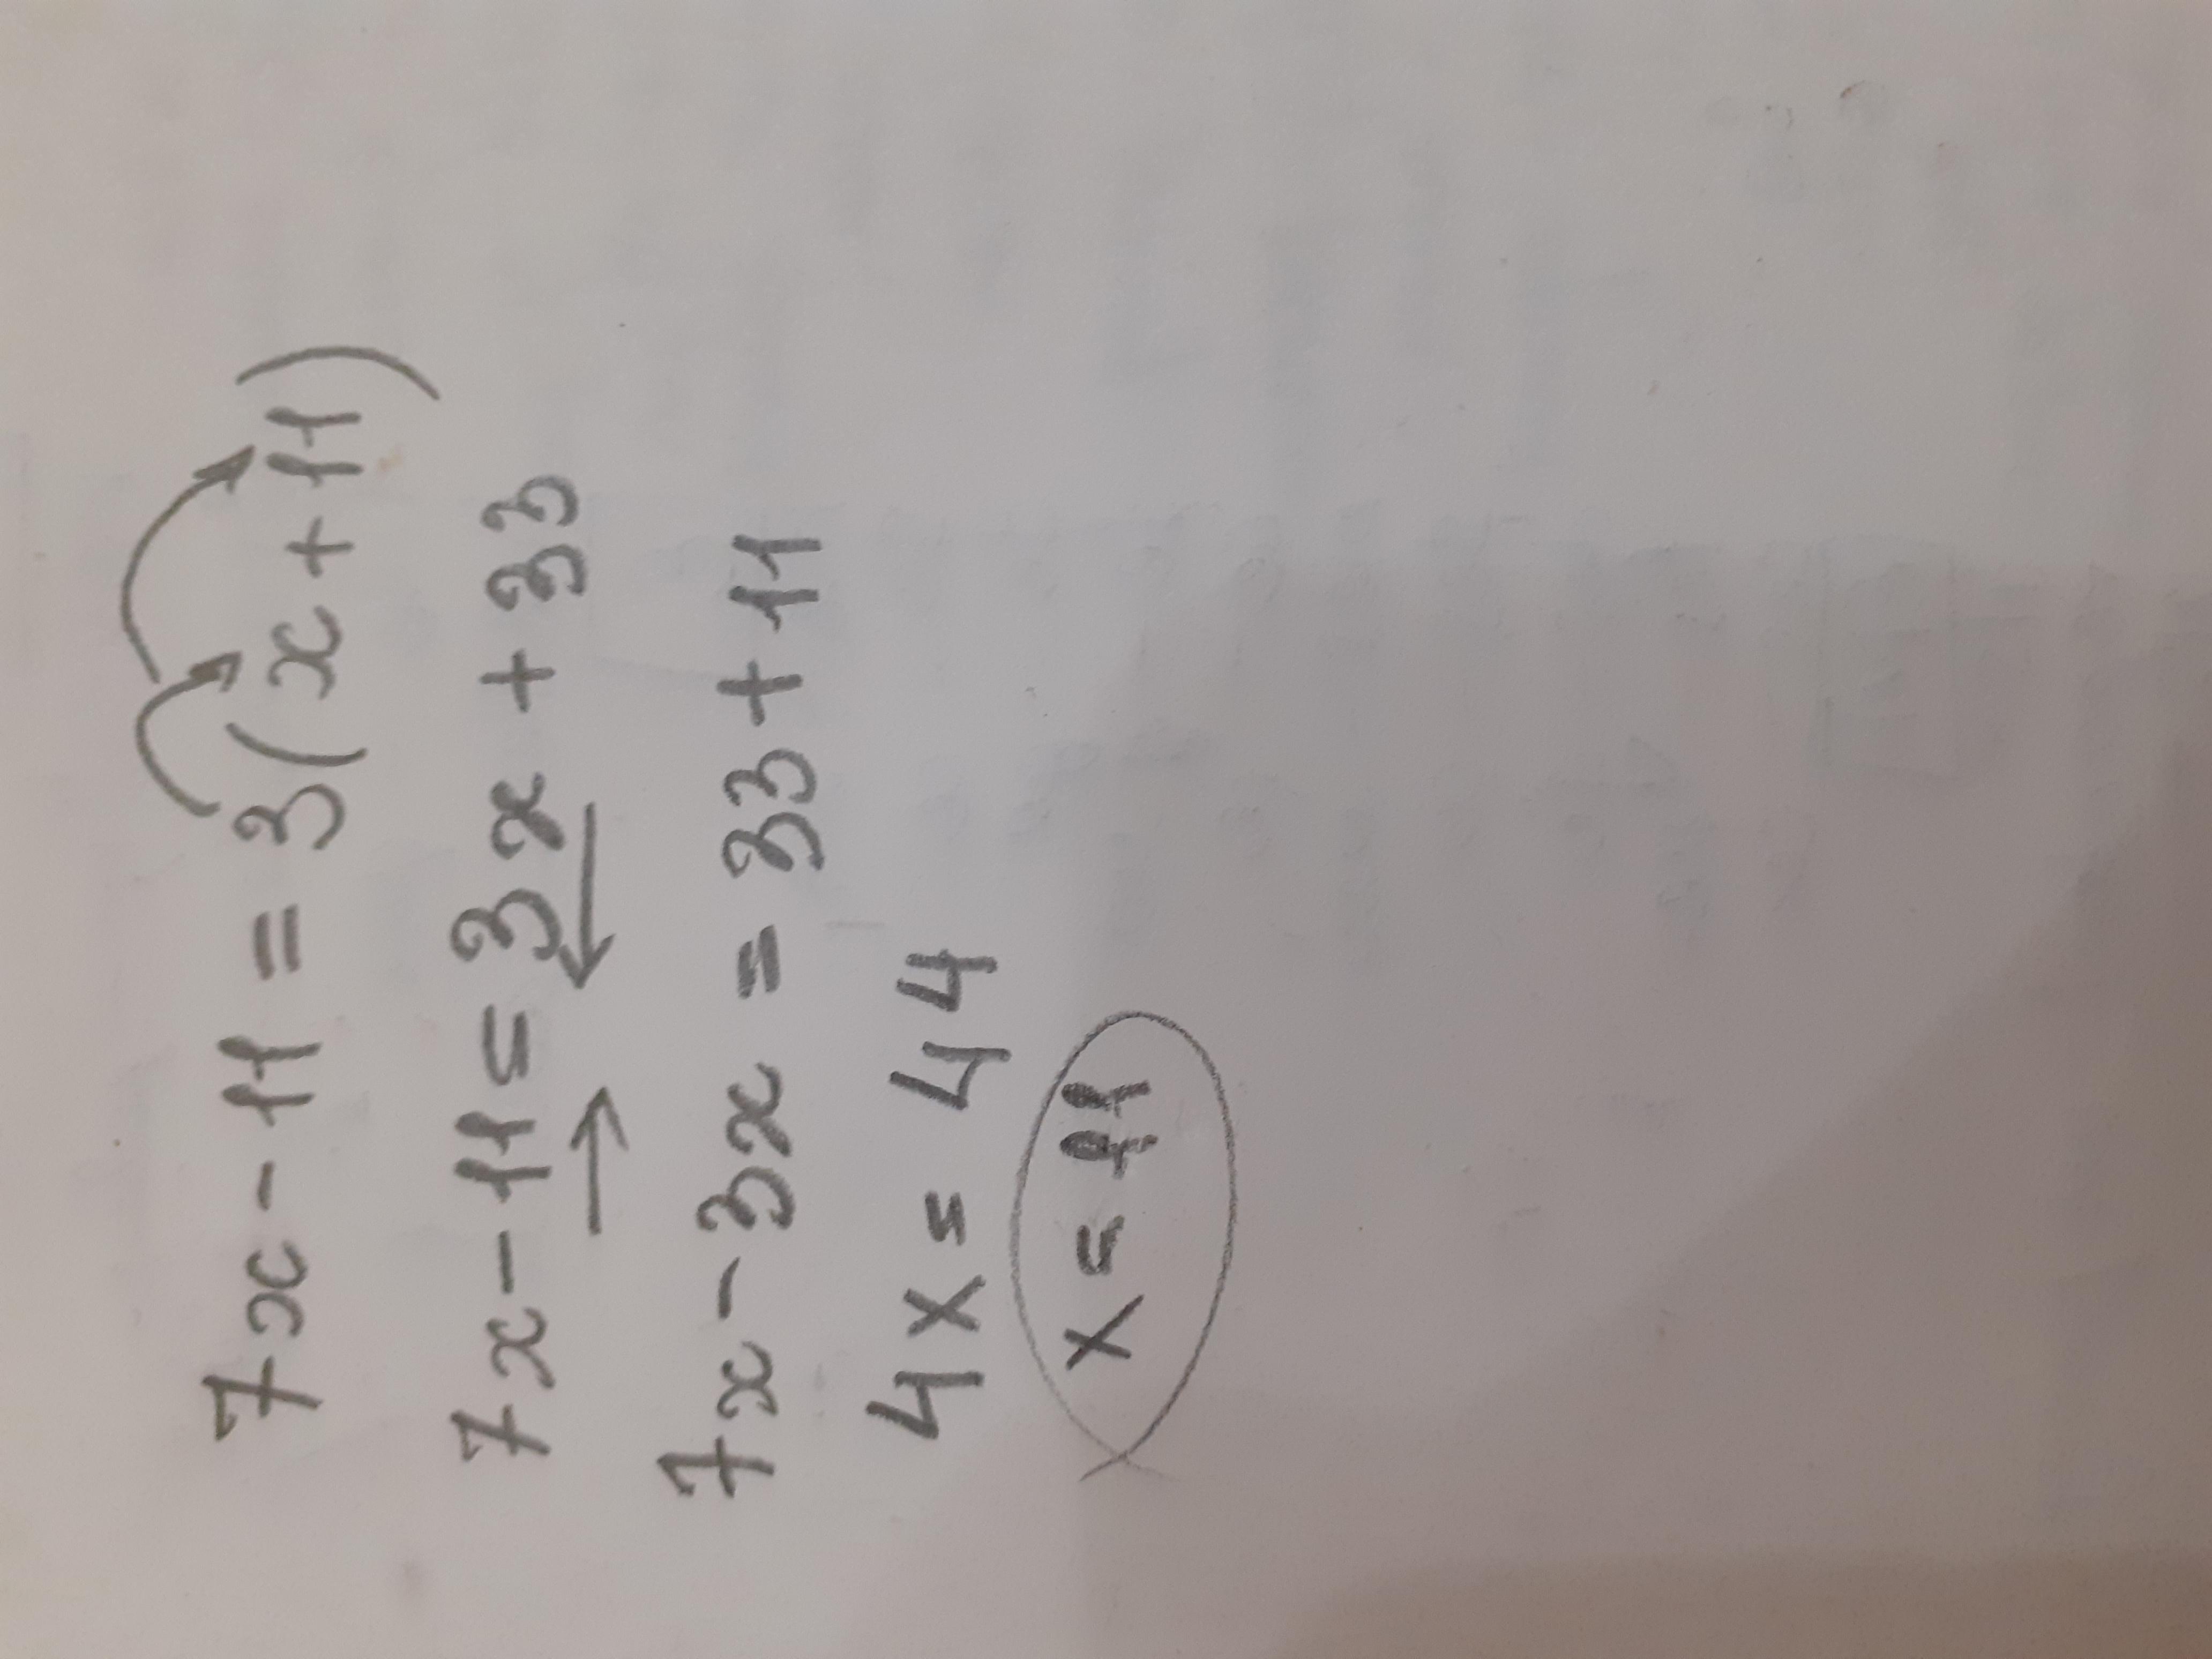 7x - 11 = 3(x + 11)
7x - 11 = 3x + 33
7x - 3x = 33 + 11
4x = 44
x = 11